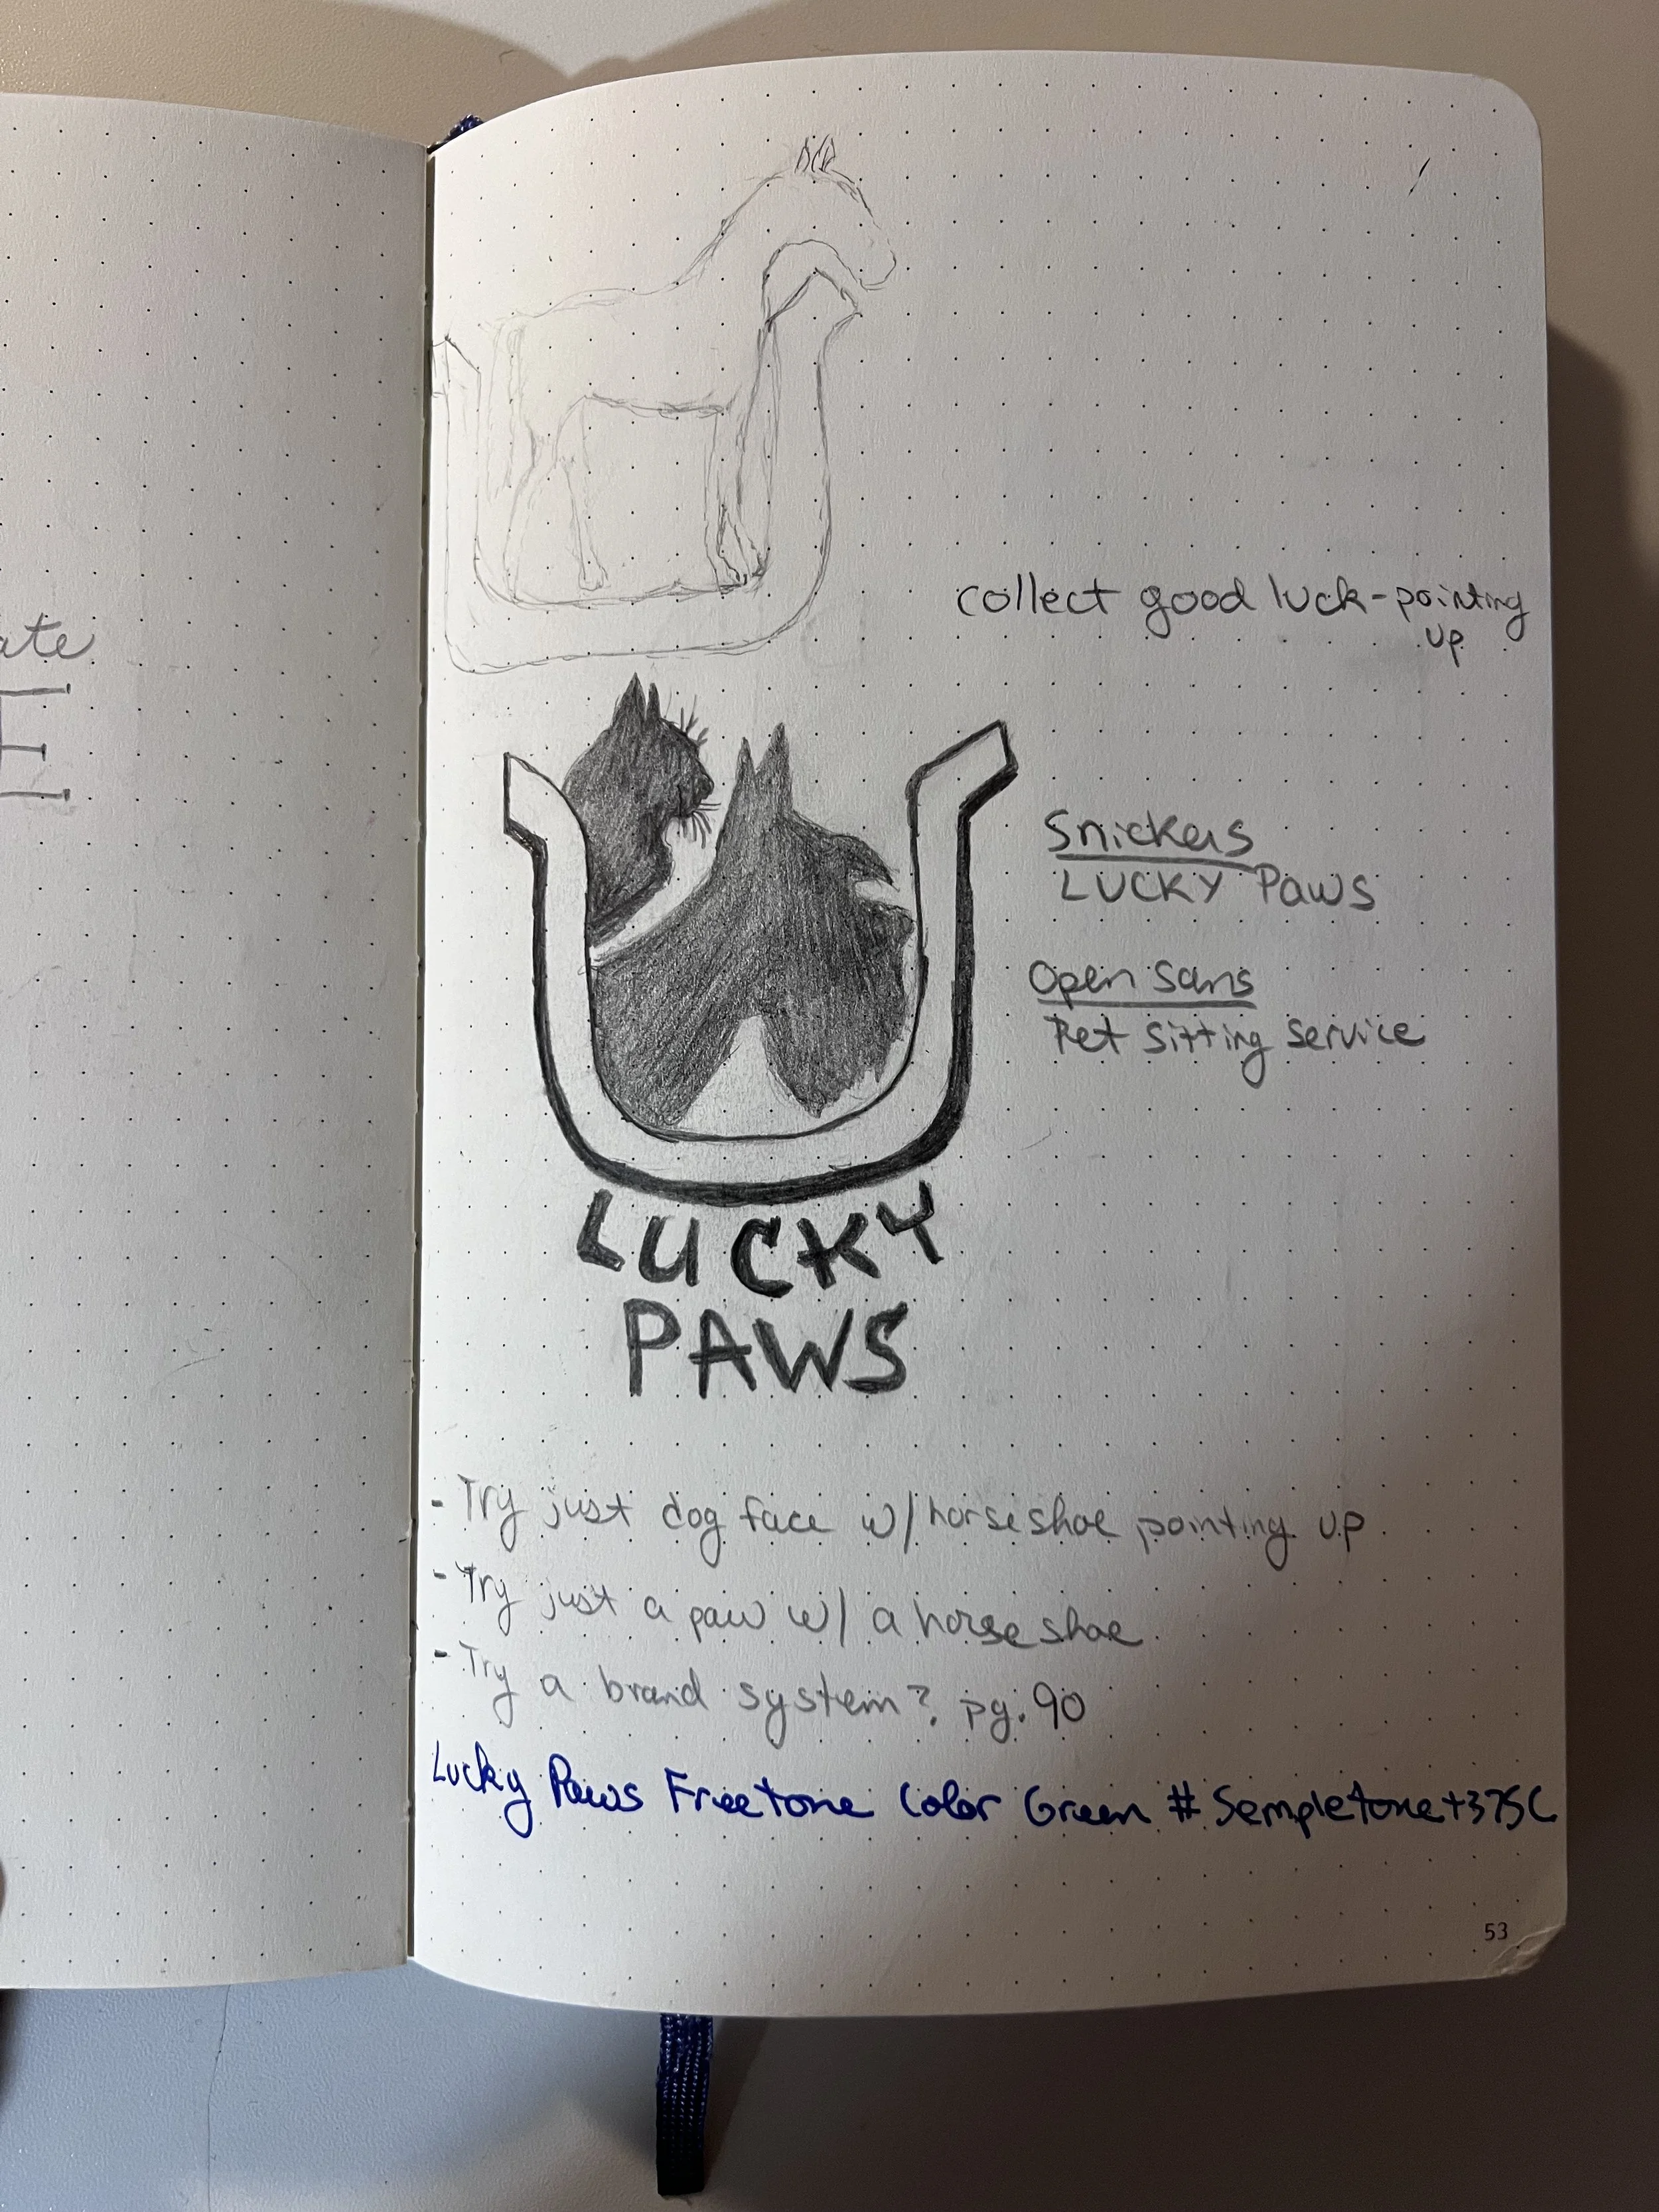 ate
E
collect good luck-pointing
up
Snickers
LUCKY Paws
Open Sans
Pet Sitting Service
LUCKY
PAWS
- Try just dog face w/horseshoe pointing up
- Try just a paw w/ a horseshoe
- Try a brand system? pg. 90
Lucky Paws Freetone Color Green # Sempletone+375C
53